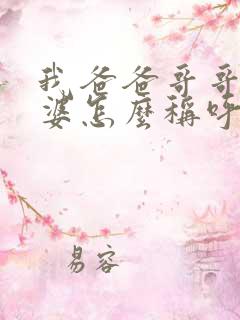 我爸爸哥哥
婆怎麼稱呼
易容